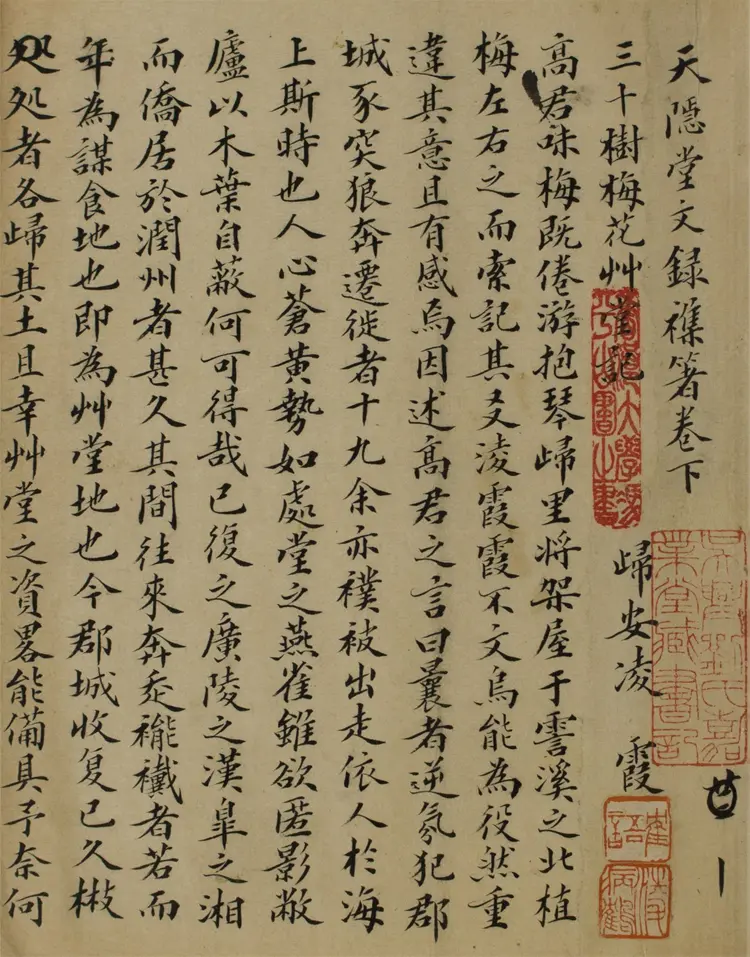 天隱堂文録襍箸卷下
三十樹梅花艸堂記
歸安凌 霞
高君味梅既倦游抱琴歸里将架屋于霅溪之北植
梅左右之而索記其友凌霞霞不文烏能為役然重
違其意且有感焉因述高君之言曰曩者逆氛犯郡
城豕突狼奔遷徙者十九余亦襆被出走依人於海
上斯時也人心蒼黄勢如處堂之燕雀雖欲匿影敝
廬以木葉自蔽何可得哉已復之廣陵之漢臯之湘
而僑居於潤州者甚久其間往來奔走褦襶者若而
年為謀食地也即為艸堂地也今郡城收复已久㪚
処処者各歸其土且幸艸堂之資畧能備具予奈何
吳興劉氏嘉業堂藏書記